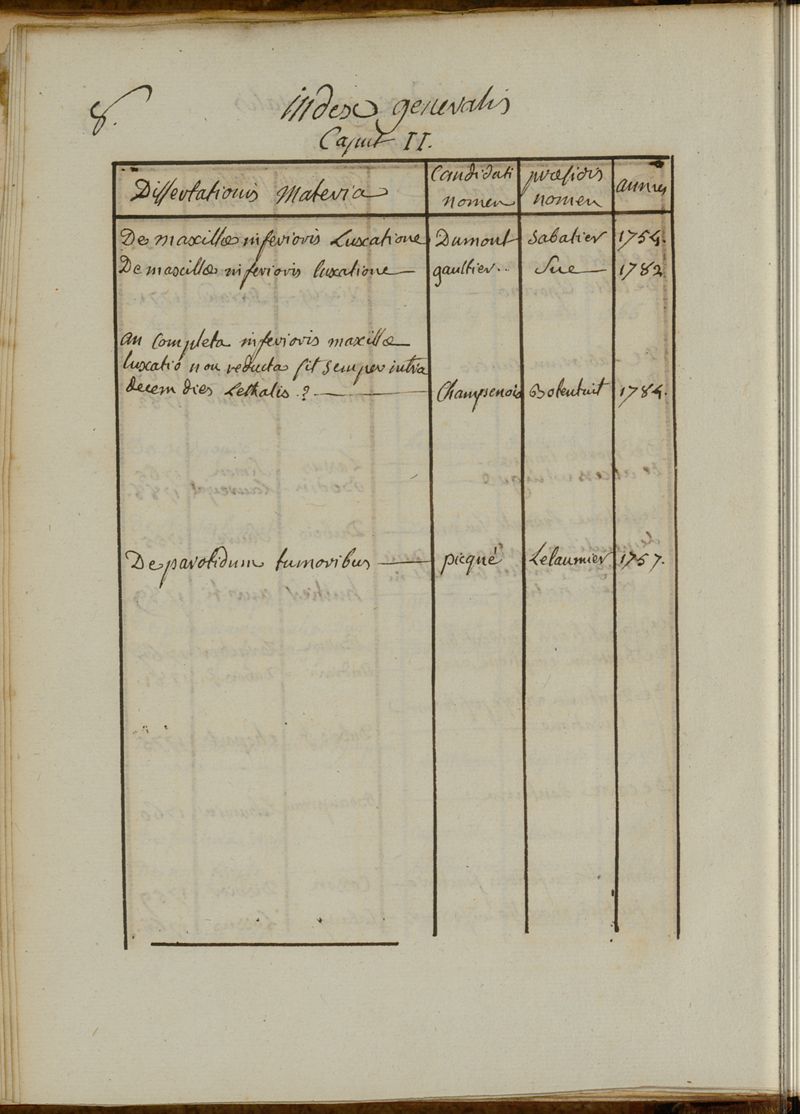 8.
Index generalis
Caput II.
Dissertationis Materia
Candidati nomen
præsidis nomen
annus
De maxillæ inferioris Luxatione Dumont Sabatier 1754.
De maxillæ inferioris luxatione gaultier.. Sue 1782
an Completa inferioris maxillæ
luxatio non reducta sit semper intra
decem dies Lethalis.? Champenois Botentuit 1784.
De parotidum tumoribus picqué Lelaumier 1757.